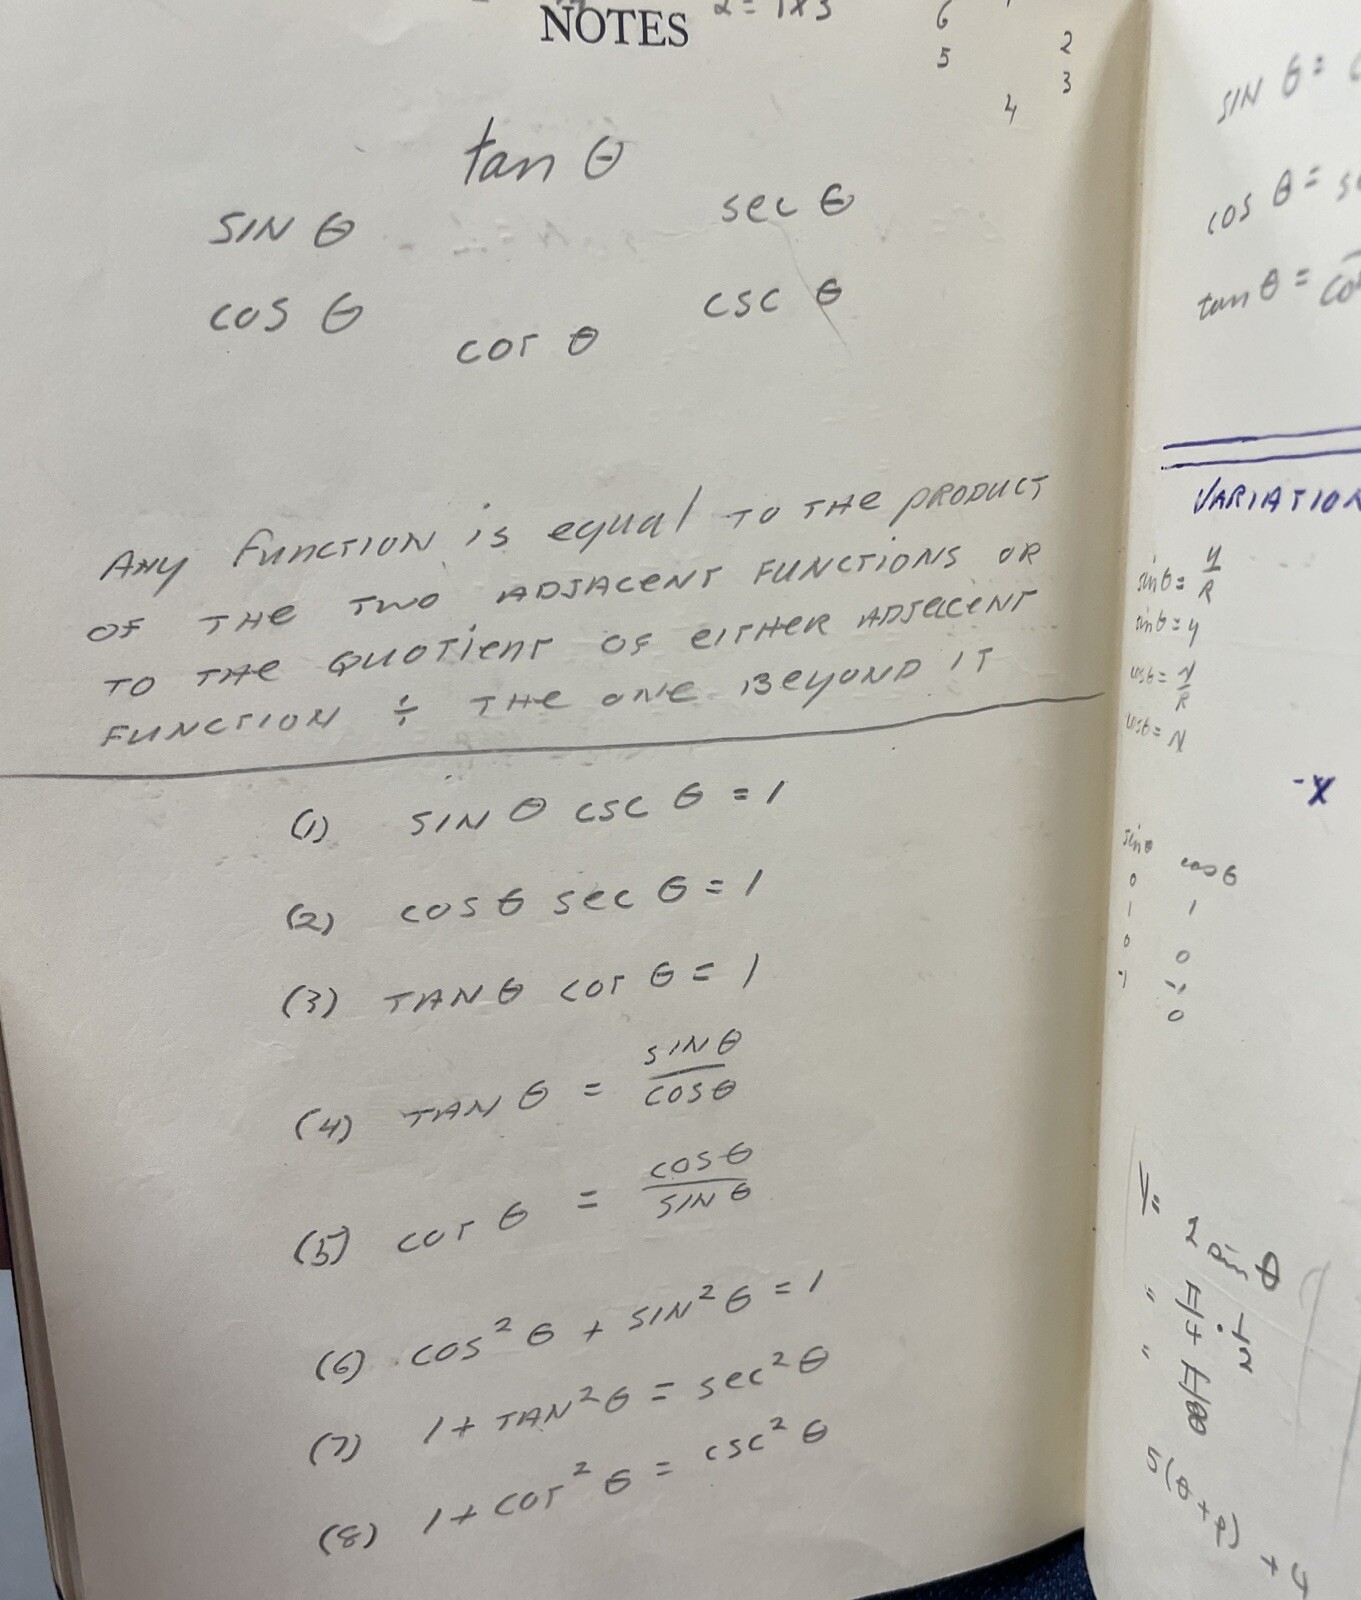 NOTES
2 = 1x3
6
5 2
3
4
tan θ
SIN θ sec θ
cos θ csc θ
cot θ
ANY FUNCTION is equal TO THE PRODUCT
OF THE TWO ADJACENT FUNCTIONS OR
TO THE QUOTIENT OF EITHER ADJACENT
FUNCTION ÷ THE ONE BEYOND IT
(1) SIN θ CSC θ = 1
(2) COS θ SEC θ = 1
(3) TAN θ COT θ = 1
(4) TAN θ = SIN θ / COS θ
(5) COT θ = COS θ / SIN θ
(6) COS² θ + SIN² θ = 1
(7) 1 + TAN² θ = SEC² θ
(8) 1 + COT² θ = CSC² θ
SIN θ =
cos θ =
tan θ =
VARIATION
sin θ = y/R
sin θ = y
cos θ =
cos θ =
-X
sin θ cos θ
0 1
1 0
0 -1
-1 0
y = 2 sin θ
5(θ+φ) + 4